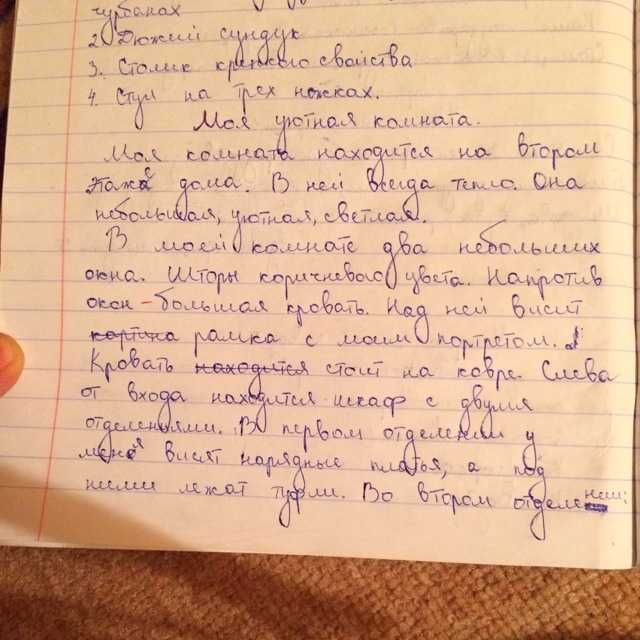 чурбанах
2. Дюжий сундук
3. Столик крепкого свойства
4. Стул на трех ножках.
Моя уютная комната.
Моя комната находится на втором
этаже дома. В ней всегда тепло. Она
небольшая, уютная, светлая.
В моей комнате два небольших
окна. Шторы коричневого цвета. Напротив
окон - большая кровать. Над ней висит
картина рамка с моим портретом.
Кровать находится стоит на ковре. Слева
от входа находится шкаф с двумя
отделениями. В первом отделении у
меня висят нарядные платья, а под
ними лежат туфли. Во втором отделении: